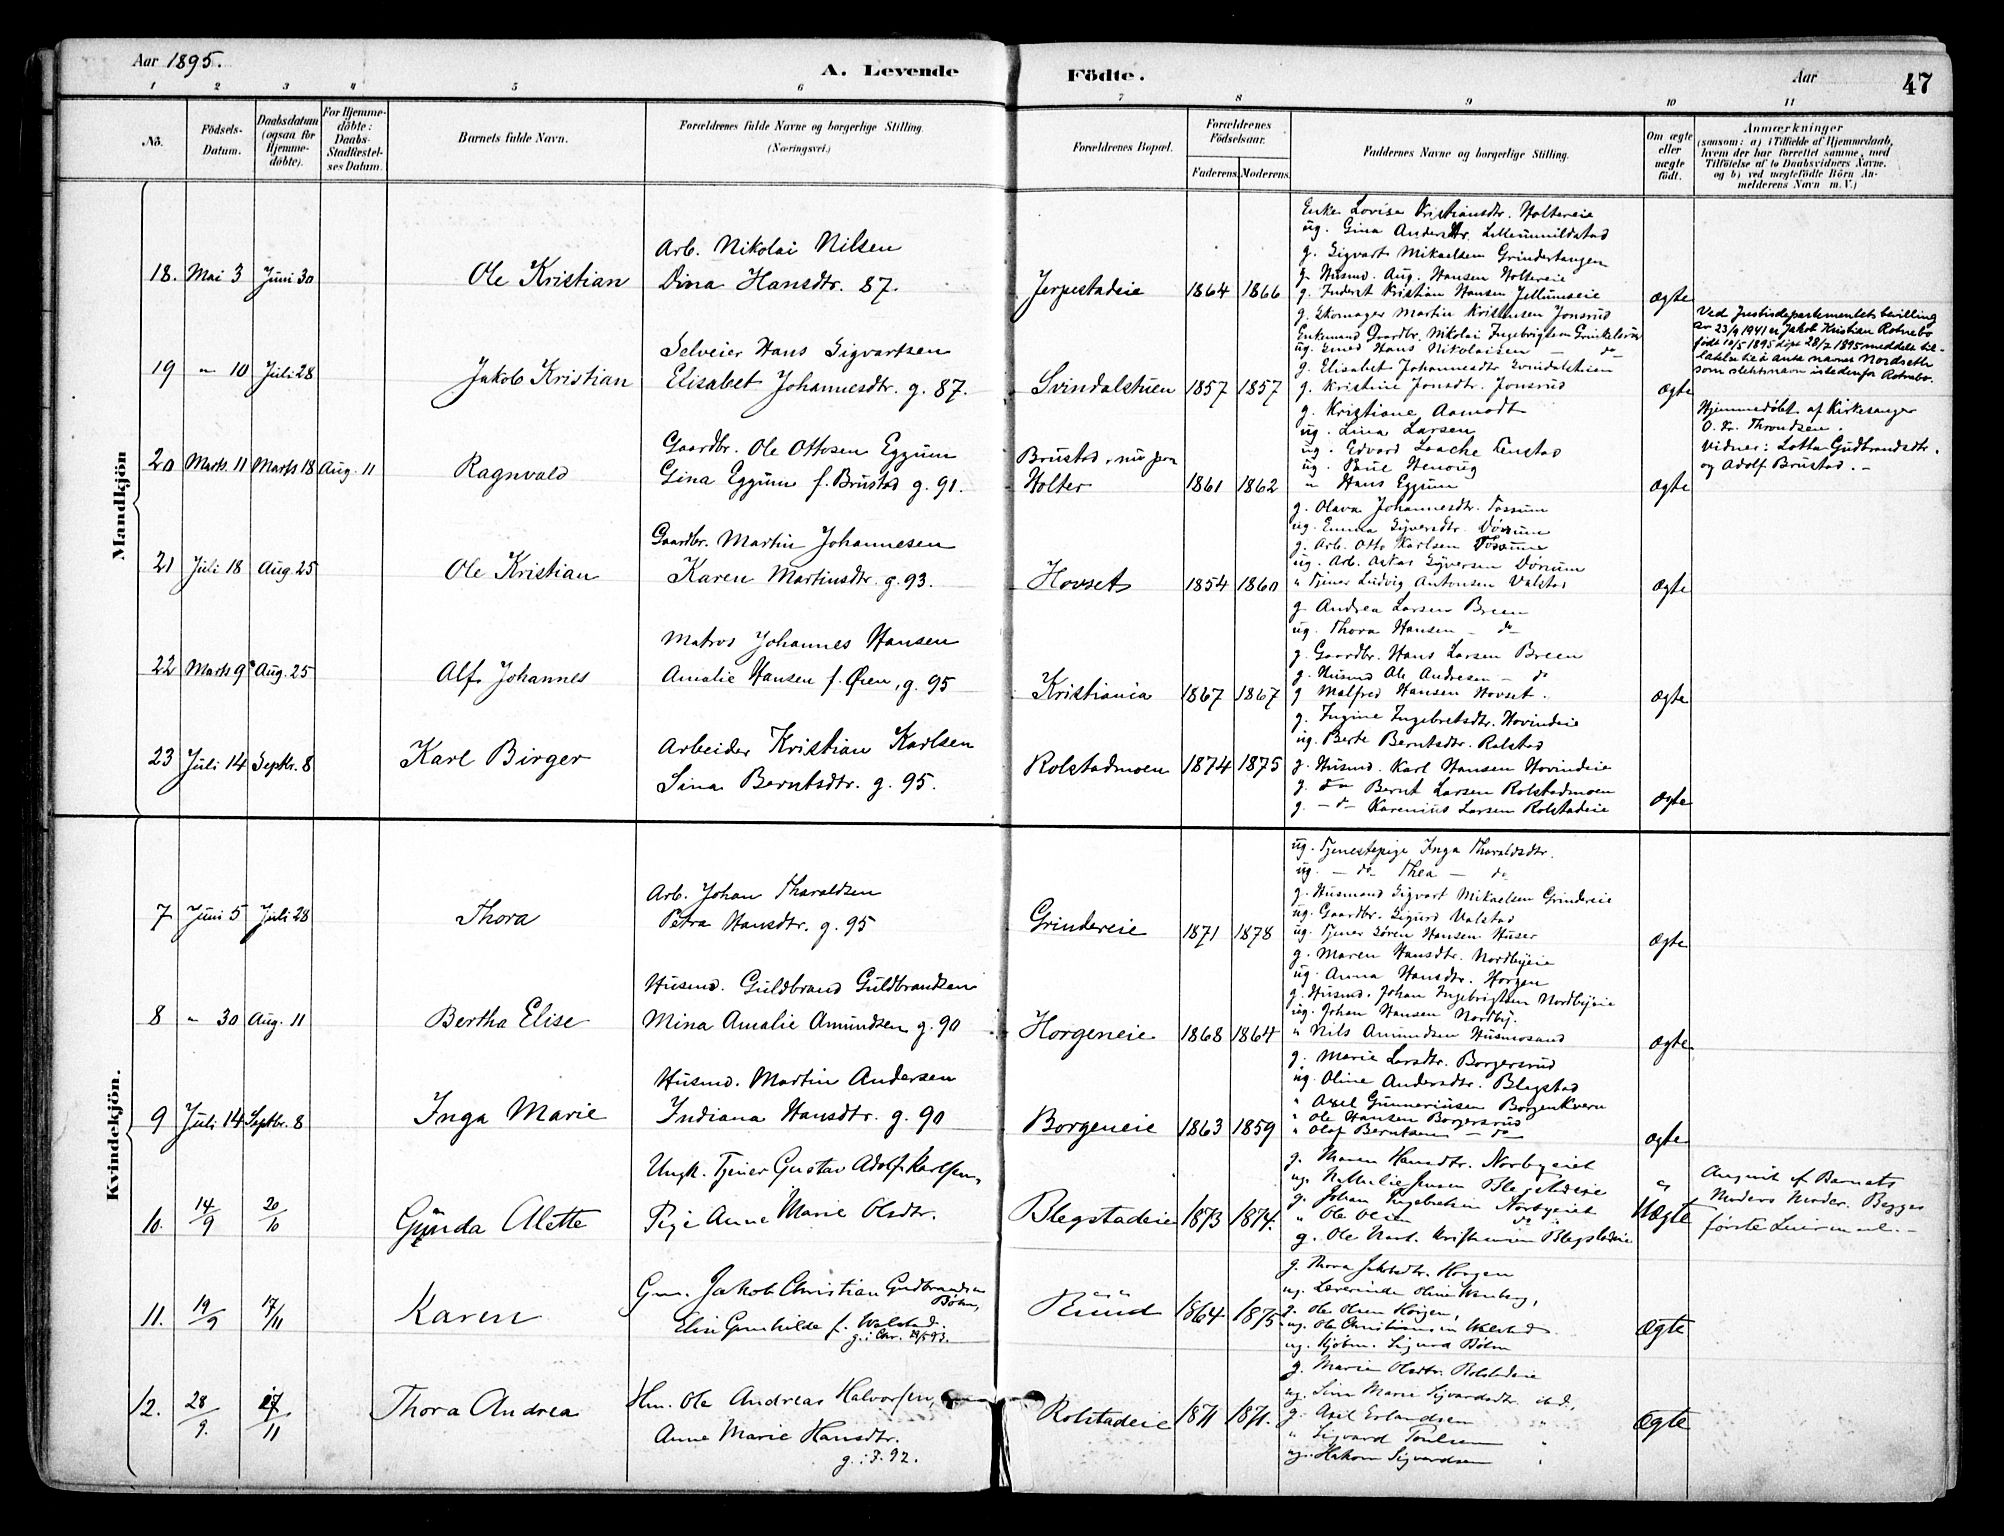 Aar 1895.
A. Levende
Födte.
Aar
47
1 2 3 4 5 6 7 8 9 10 11
No.
Födsels-
Datum.
Daabsdatum
(ogsaa for
Hjemme-
döbte).
For Hjemme-
döbte:
Daabs-
Stadfæstel-
ses Datum.
Barnets fulde Navn.
Forældrenes fulde Navne og borgerlige Stilling.
(Næringsvei.)
Forældrenes Bopæl.
Forældrenes
Födselsaar.
Faderens. Moderens.
Faddernes Navne og borgerlige Stilling.
Om ægte
eller
uægte
födt.
Anmærkninger
(saasom: a) i Tilfælde af Hjemmedaab,
hvem der har forrettet samme, med
Tilföielse af to Daabsvidners Navne,
og b) ved uægtefödte Börn An-
melderens Navn m. V.)
Mandkjön
18. Mai 3 Juni 30 Ole Kristian
Arb. Nikolai Nilsen
Dina Hansdtr. 87.
Jerpestadeie 1864 1866
Enke Lovise Kristiansdtr. Holtereie
ug. Gina Andersdtr.
g. Sigvart Mikaelsen Grindertangen
g. Husmd. Aug. Hansen Holtereie
g. Inderst Kristian Hansen Jellumseie
ægte
19 " 10 Juli 28 Jakob Kristian
Selveier Hans Sigvartsen
Elisabet Johannesdtr. g. 87.
Svindalstuen 1857 1857
g. Skomager Martin Kristensen Jonsrud
Enkemand Gaardbr. Nikolai Ingebrigtsen
ug. Hans Nikolaisen — do
g. Elisabet Johannesdtr Svindalstuen
g. Kristine Jonsdtr. Jonsrud
ægte
Ved Justisdepartementets bevilling
av 23/9 1941 er Jakob Kristian Rotnebo
født 10/5 1895 døpt 28/7 1895 meddelt til-
latelse til å anta navnet Nordseth
som slektsnavn istedenfor Rotnebo.
20 Marts 11 Marts 18 Aug. 11 Ragnvald
Gaardbr. Ole Ottosen Eggum
Gina Eggum f. Brustad g. 91.
Brustad, nu paa
Holter 1861 1862
g. Kristiane Aamodt
ug. Lina Larsen
ug. Edvard Laache
ug. Paul Henoug
" Hans Eggum
ægte
Hjemmedøbt af Kirkesanger
O. Throndsen.
Vidner: Lotta Gudbrandsdtr.
og Adolf Brustad. —
21 Juli 18 Aug. 25 Ole Kristian
Gaardbr. Martin Johannesen
Karen Martinsdtr. g. 93.
Hovset 1854 1860
g. Olava Johannesdtr. Tossum
ug. Emma Syversdtr. Dørum
g. Arb. Otto Karlsen Tossum
ug. Arb. Syversen Dørum
" Tjener Ludvig Antonsen Valstad
ægte
22 Marts 9 Aug. 25 Alf Johannes
Matros Johannes Hansen
Amalie Hansen f. Øien, g. 95
Kristiania 1867 1867
g. Andrea Larsen Breen
ug. Thora Hansen — do
g. Gaardbr. Hans Larsen Breen
g. Husmd Ole Andresen — do
g Malfred Hansen Hovset.
ægte
23 Juli 14 Septbr. 8 Karl Birger
Arbeider Kristian Karlsen
Sina Berntsdtr. g. 95.
Rolstadmoen 1874 1875
g. Ingine Ingebretsdtr. Hovindeie
ug. Berte Berntsdtr. Rolstad
g. Husmd. Karl Hansen Hovindeie
g. do Bernt Larsen Rolstadmoen
g. — do — Karenius Larsen Rolstadeie
ægte
Kvindekjön.
7 Juni 5 Juli 28 Thora
Arb. Johan Tharaldsen
Petra Hansdtr. g. 95
Grindereie 1871 1878
ug. Tjenestepige Inga Tharaldsdtr.
ug. — do Thea — do
g. Husmand Sigvart Mikaelsen Grindereie
ug. Gaardbr. Sigurd Valstad
ug. Tjener Søren Hansen Huser
ægte
8 " 30 Aug. 11 Bertha Elise
Husmd. Guldbrand Guldbrandsen
Mina Amalie Amundsen g. 90
Horgeneie 1868 1864
g. Maren Hansdtr. Nordbyeie
ug. Anna Hansdtr. Horgen
g. Husmd. Johan Ingebrigtsen Nordbyeie
ug. Johan Hansen Nordby.
" Nils Amundsen Husmosand
ægte
9 Juli 14 Septbr. 8 Inga Marie
Husmd. Martin Andersen
Indiana Hansdtr. g. 90
Borgeneie 1863 1859
g. Marie Larsdtr. Borgersrud
ug. Oline Andersdtr. Blegstad
" Axel Gunneriusen Borgenkvern
" Ole Hansen Borgersrud
" Olaf Berntsen — do
ægte
10. 14/9 20/10 Gunda Alette
Ungk. Tjener Gustav Adolf Karlsen,
Pige Anne Marie Olsdtr.
Blegstadeie 1873 1874.
g. Maren Hansdtr. Norbyeiet
ug. Nathalie Jensen Blegstadeie
g. Johan Ingebretsen Norbyeiet
" Ole Olsen do
g. Ole Mart. Kristiansen Blegstadeie
Uægte
Angivet af Barnets
Moders Moder. Begges
første Leiermaal. —
11. 19/9 17/11 Karen
Gm. Jakob Christian Gudbrandsen
Bøhn,
Elin Gunhilde f. Walstad.
g. i Chr. 29/5 93.
Ruud 1864 1875
g. Thora Jakobsdtr. Horgen
ug. Lærerinde Oline Wenberg,
g. Ole Olsen Horgen,
ug. Ole Christiansen Walstad.
ug. Kjøbm. Sigurd Bøhn
Ægte
12. 28/9. 17/11 Thora Andrea
Hm. Ole Andreas Halvorsen,
Anne Marie Hansdtr.
g. i F. 92.
Rolstadeie 1871 1871.
g. Marie Olsdtr. Rolstadeie
ug. Sina Marie Sigvardsdtr. ibd.,
g. Axel Erlandsen "
" Sigvard Poulsen "
ug. Hakon Sigvardsen "
Ægte